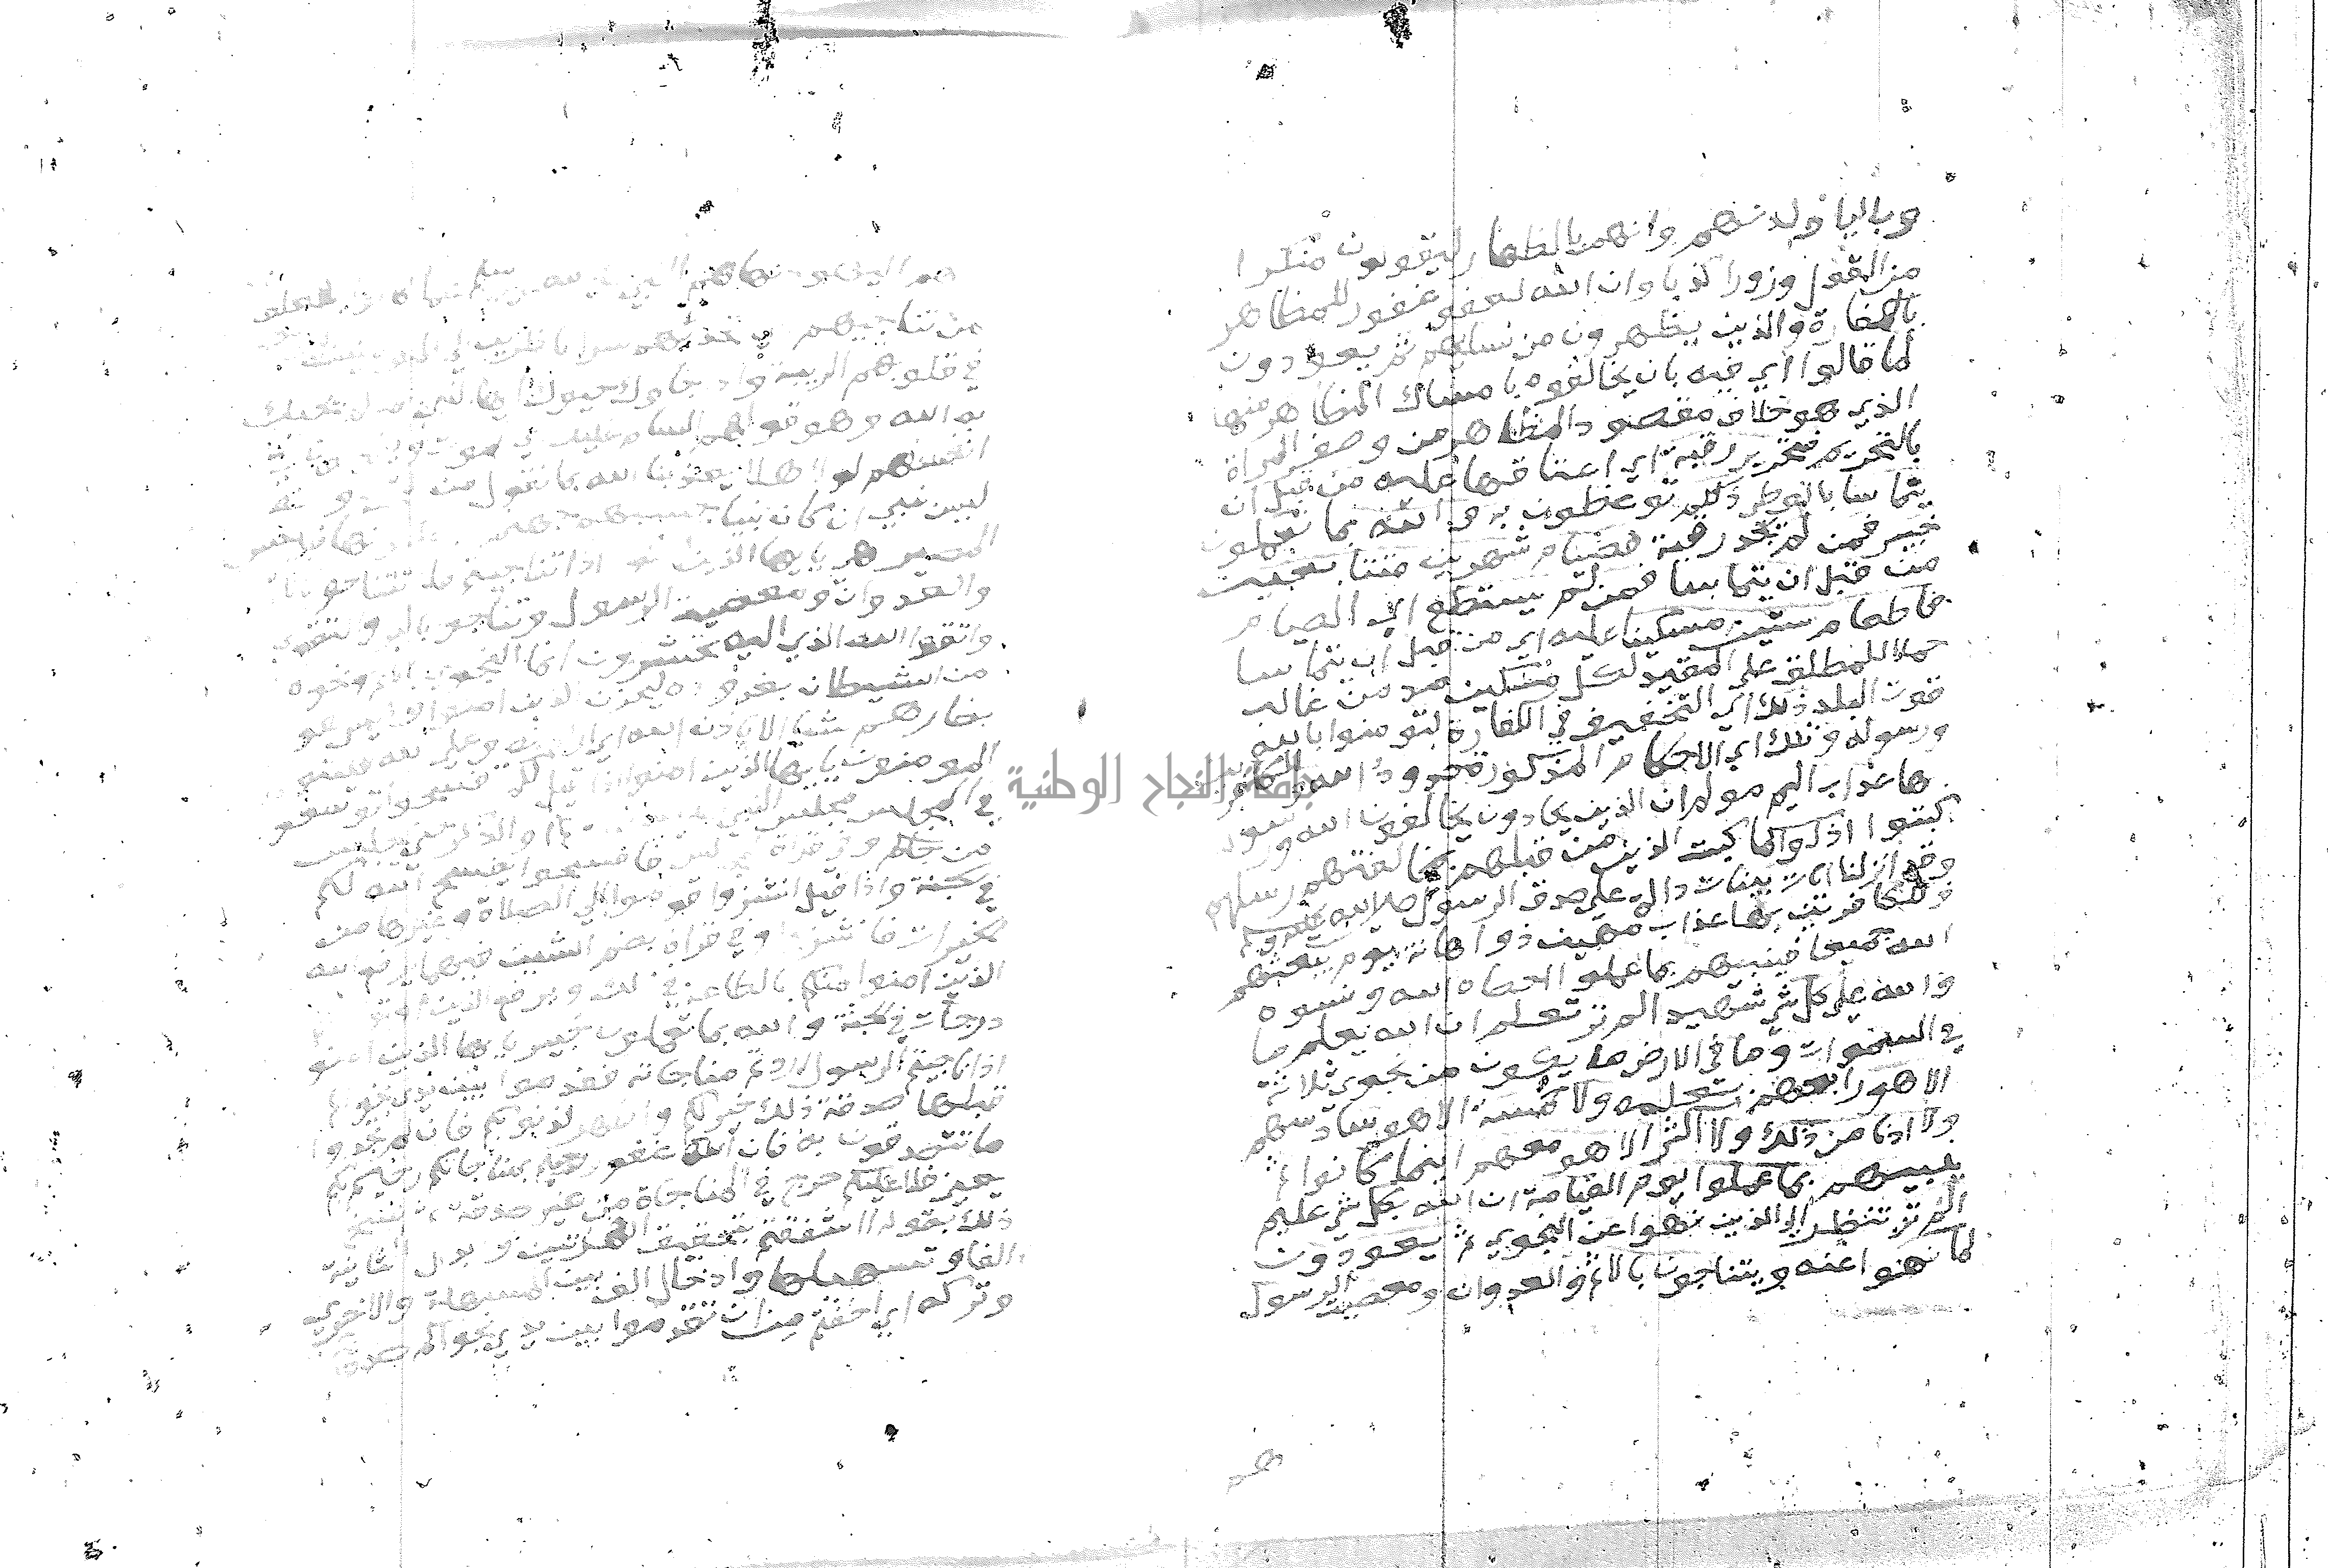 وباليا ولدنهم وانهم بالظهار ليقولون منكرا
من القول وزورا كذبا وان الله لعفو غفور للمظاهر
بالكفارة والذين يظهرون من نسايهم ثم يعودون
لما قالوا اي فيه بان يخالفوه بامساك المظاهر منها
الذي هو خلاف مقصود المظاهر من وصف المراة
بالتحريم فتحرير رقبة اي اعتاقها عليه من قبل ان
يتماسا بالوطي ذلكم توعظون به والله بما تعملون
خبير فمن لم يجد رقبة فصيام شهرين متتابعين
من قبل ان يتماسا فمن لم يستطع اي الصيام
فاطعام ستين مسكينا عليه اي من قبل ان يتماسا
حملا للمطلق على المقيد لكل مسكين مد من غالب
قوت البلد ذلك اي التخفيف في الكفارة لتومنوا بالله
ورسوله وتلك اي الاحكام المذكورة حدود الله وللكافرين
بها عذاب اليم مولم ان الذين يحادون يخالفون الله ورسوله
كبتوا اذلوا كما كبت الذين من قبلهم بمخالفتهم رسلهم
وقد انزلنا ايات بينات دالة على صدق الرسول صلى الله عليه وسلم
وللكافرين بها عذاب مهين ذو اهانة يوم يبعثهم
الله جميعا فينبيهم بما عملوا احصاه الله ونسوه
والله على كل شي شهيد الم تر تعلم ان الله يعلم ما
في السموات وما في الارض ما يكون من نجوى ثلاثة
الا هو رابعهم بعلمه ولا خمسة الا هو سادسهم
ولا ادنا من ذلك ولا اكثر الا هو معهم اينما كانوا ثم
ينبيهم بما عملوا يوم القيامة ان الله بكل شي عليم
الم تر تنظر الى الذين نهوا عن النجوى ثم يعودون
لما نهوا عنه ويتناجون بالاثم والعدوان ومعصية الرسول
هم
هم اليهود نهاهم النبي
من تناجيهم
في قلوبهم الريبة واذا جاوك حيوك ايها النبي بما لم يحيك
به الله وهو قولهم السام عليك اي الموت ويقولون في
انفسهم لولا هلا يعذبنا الله بما نقول من
ليس نبي ان كان نبيا حسبهم جهنم يصلونها فبيس
المصير هي يايها الذين امنوا اذا تناجيتم فلا تتناجوا بالاثم
والعدوان ومعصية الرسول وتناجوا بالبر والتقوى
واتقوا الله الذي اليه تحشرون انما النجوى بالاثم ونحوه
من الشيطان بغروره ليحزن الذين امنوا وليس هو
بضارهم شيا الا باذن الله اي ارادته وعلى الله فليتوكل
المومنون يايها الذين امنوا اذا قيل لكم تفسحوا توسعوا
في المجلس مجلس النبي صلى الله عليه وسلم او الذكر حتى يجلس
من جاكم وفي قراة المجالس فافسحوا يفسح الله لكم
في الجنة واذا قيل انشزوا قوموا الي الصلاة وغيرها من
الخيرات فانشزوا وفي قراة بضم الشين فيهما يرفع الله
الذين امنوا منكم بالطاعة في ذلك ويرفع الذين اوتوا
درجات في الجنة والله بما تعملون خبير يايها الذين امنوا
اذا ناجيتم الرسول اردتم مناجاته فقدموا بين يدي نجواكم
قبلها صدقة ذلك خير لكم واطهر لذنوبكم فان لم تجدوا
ما تتصدقون به فان الله غفور رحيم لمناجاتكم رحيم بكم
يعني فلا عليكم حرج في المناجاة من غير صدقة ثم نسخ
ذلك بقوله ااشفقتم بتحقيق الهمزتين وابدال الثانية
الفا وتسهيلها وادخال الف بين المسهلة والاخرى
وتركه اي اخفتم من ان تقدموا بين يدي نجواكم صدقة
جامعة النجاح الوطنية